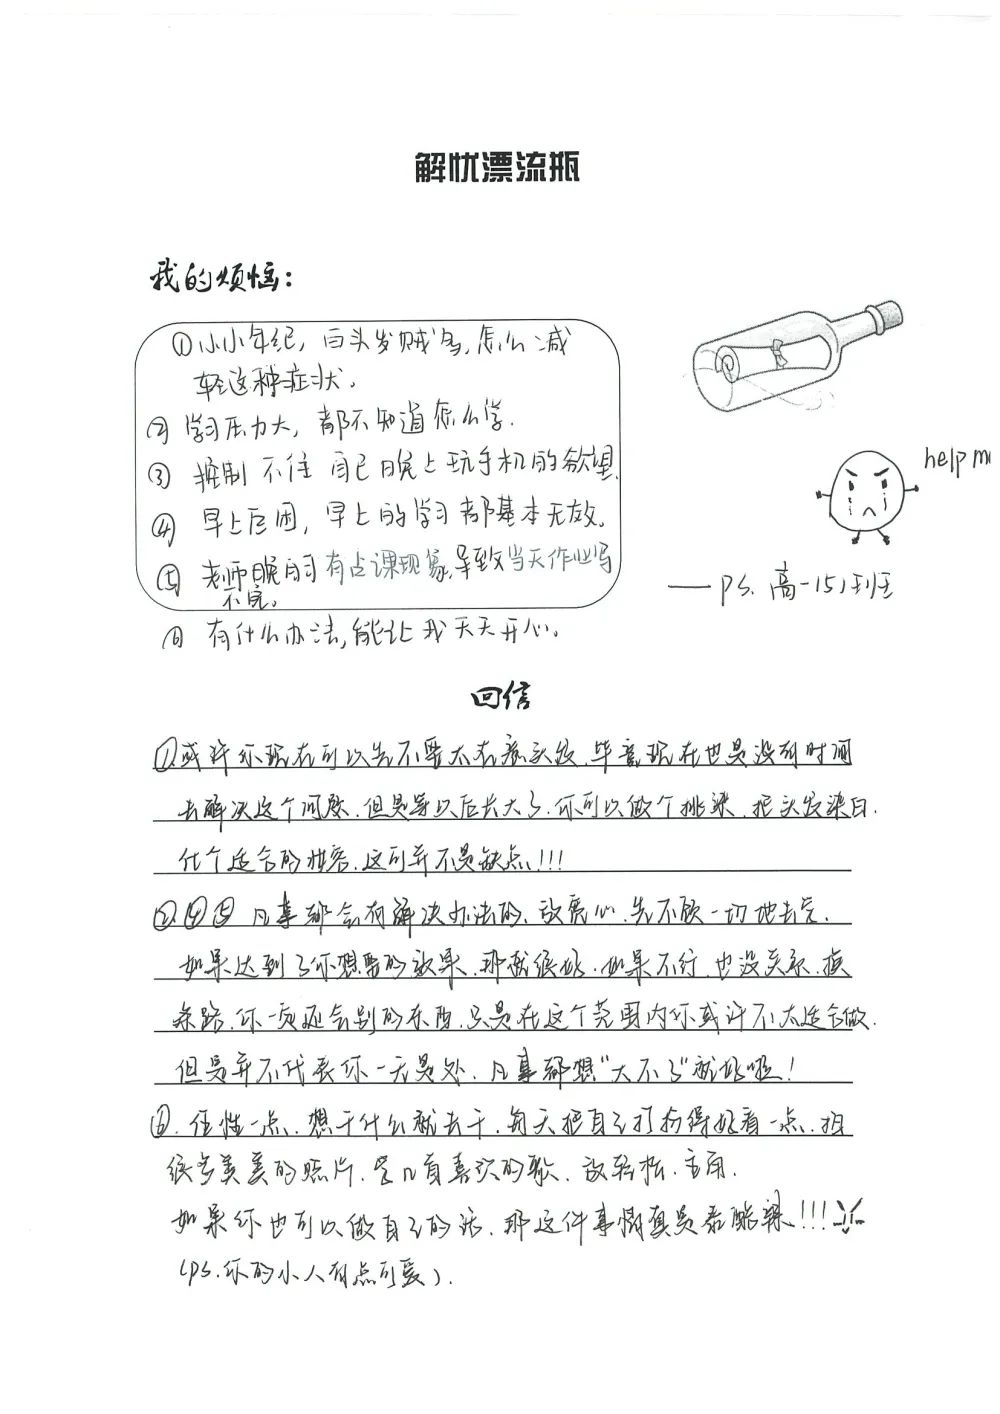 解忧漂流瓶
我的烦恼：
①小小年纪，白头发贼多，怎么减
轻这种症状。
② 学习压力大，都不知道怎么学.
③ 控制不住自己晚上玩手机的欲望.
④ 早上巨困，早上的学习都基本无效。
⑤ 老师晚自习有占课现象，导致当天作业写
不完。
⑥ 有什么办法，能让我天天开心。
help m
—— PS. 高一15)班
回信
①或许你现在可以先不要太在意头发，毕竟现在也是没有时间
去解决这个问题，但是等以后长大了，你可以做个挑染，把头发染白，
化个适合的妆容，这可并不是缺点!!!
②④⑤ 凡事都会有解决办法的，放宽心，先不顾一切地去
如果达到了你想要的效果，那就很好，如果不行，也没关系，换
条路，你一定还会别的东西，只是在这个范围内你或许不太适合做，
但是并不代表你一无是处，凡事都想“大不了”就好啦！
⑥. 任性一点，想干什么就去干，每天把自己打扮得好看一点，拍
很多美美的照片，学几首喜欢的歌，放轻松，
如果你也可以做自己的话，那这件事情真是泰酷辣!!!
(PS.你的小人有点可爱).